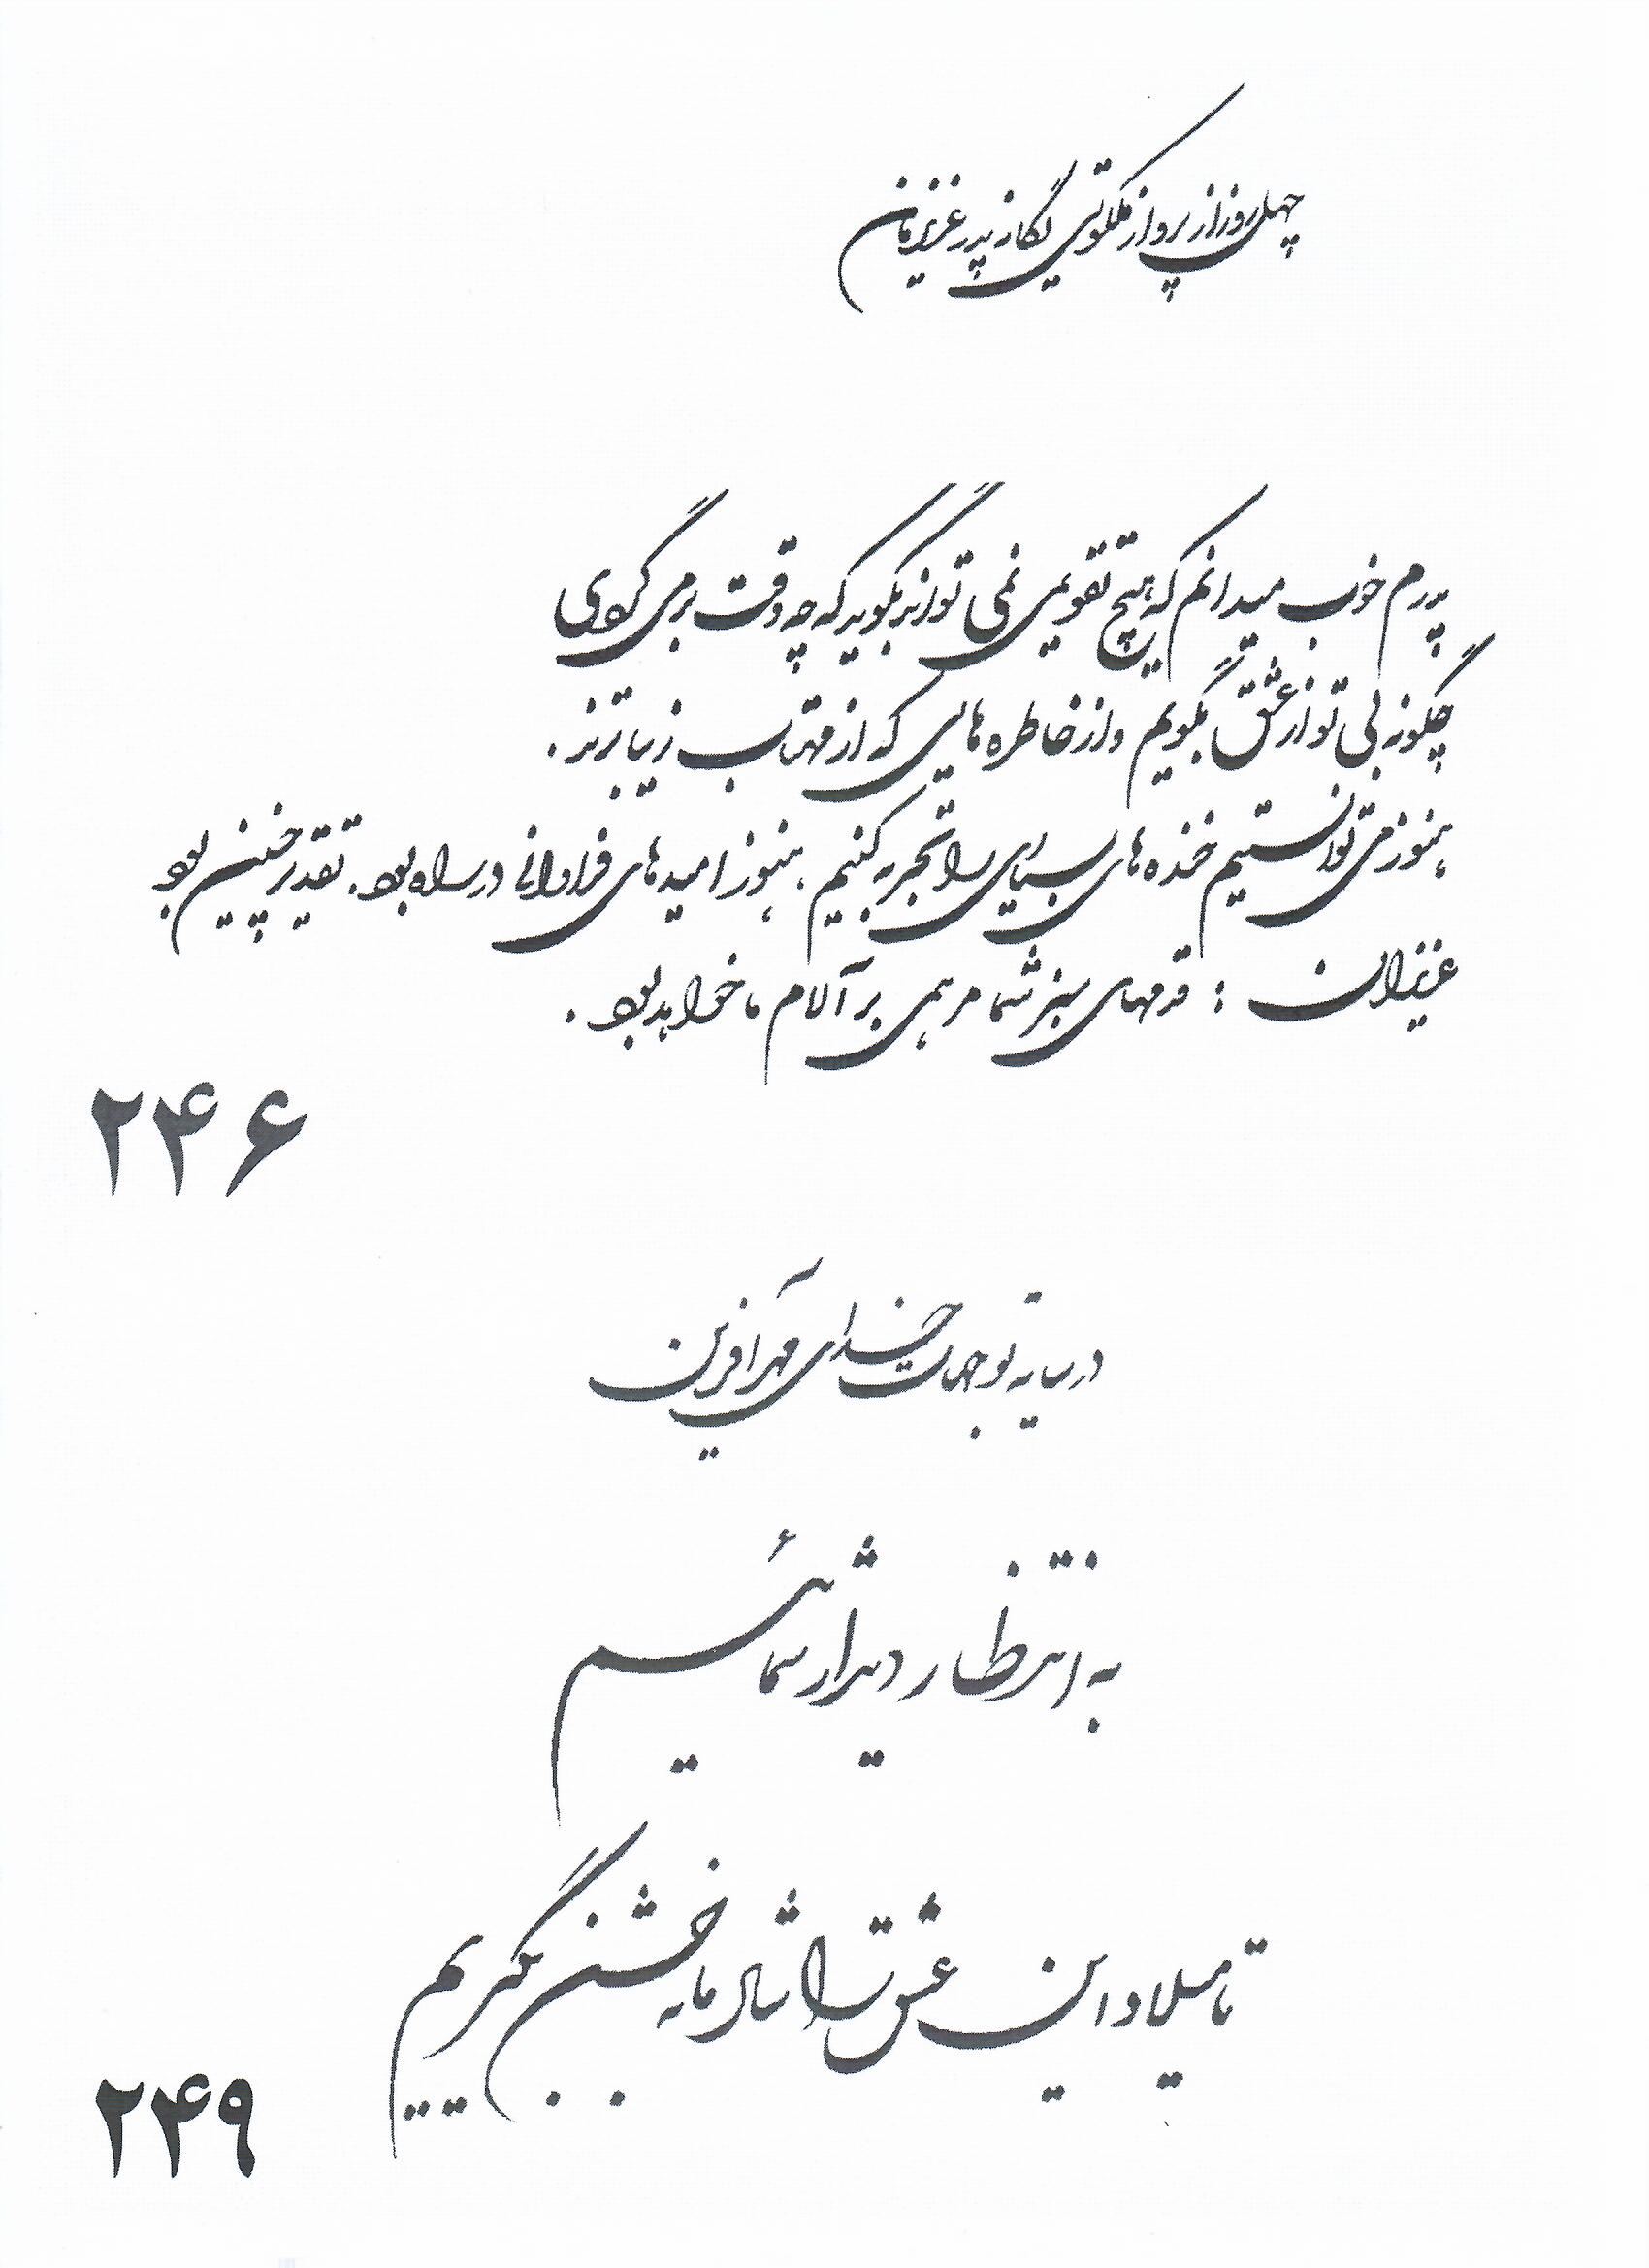 چهل روز از پرواز ملکوتی یگانه پدر عزیزمان
پدرم خوب میدانم که هیچ تقویمی نمی تواند بگوید که چه وقت برمی گردی
چگونه بی تو از عشق بگویم و از خاطره هایی که از مهتاب زیباترند .
هنوز می توانستیم خنده های بسیاری را تجربه کنیم ، هنوز امیدهای فراوانی در راه بود . تقدیر چنین بود
عزیزان : قدمهای سبز شما مرهمی بر آلام ما خواهد بود .
۲۴۶
در سایه توجهات خدای مهرآفرین
به انتظار دیدار شمائیم
تا میلاد این عشق را شادمانه جشن بگیریم
۲۴۹